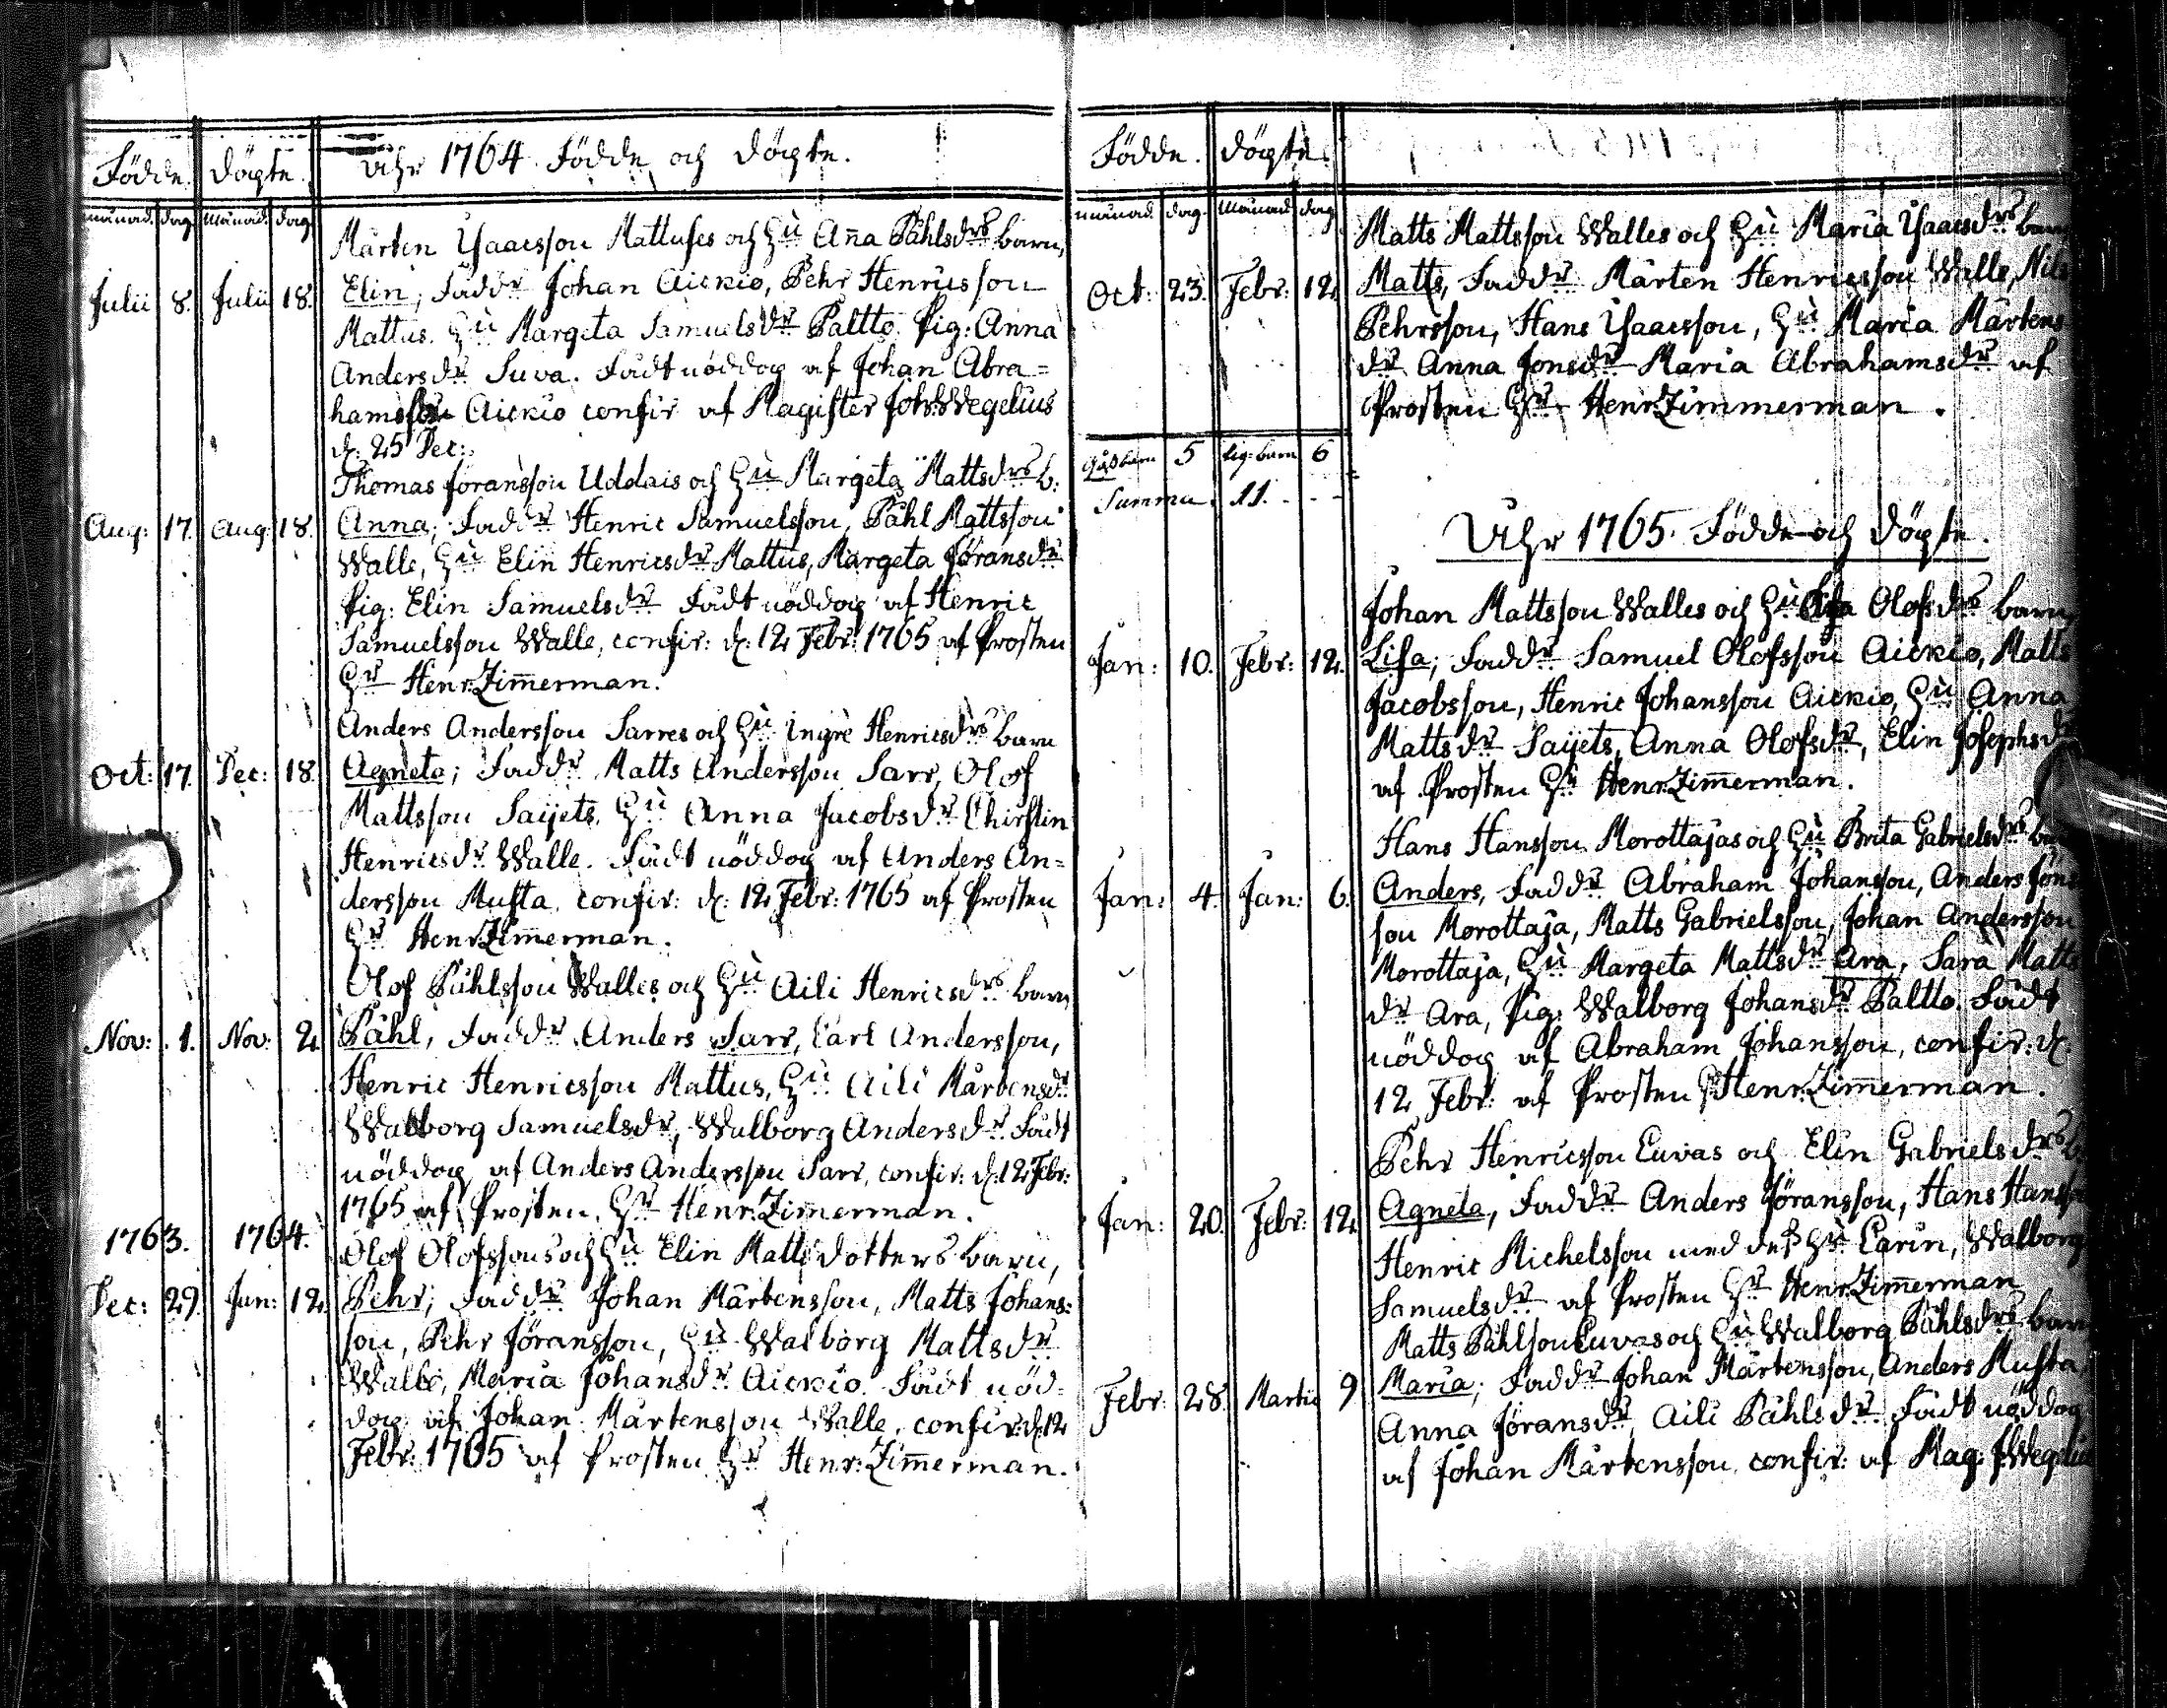 Födde. Döpte. Åhr 1764. Födde och Döpte.
månad. dag. Månad. dag.
Mårten Ysaacsson Mattuses och Hu Aña Påhlsdrs barn,
Julii 8. Julii 18. Elin; Faddr Johan Aickio, Pehr Henricsson
Mattus. Hu Margeta Samuelsdr Paltto. Pig: Anna
Andersdr Suva. Fådt nöddop af Johan Abra=
hamsson Aickio confir af Magister Joh: Wegelius
d: 25 Dec:
Thomas Joransson Uddais och Hu Margeta Mattsdrs b:
Aug: 17. Aug: 18. Anna; Faddr Henric Samuelsson, Påhl Mattsson
Walle, Hu Elin Henricsdr Mattus, Margeta Jöransdr
Pig: Elin Samuelsdr Fådt nöddop af Henric
Samuelsson Walle, confir: d: 12 Febr: 1765 af Prosten
Hr Henr: Zim̃erman.
Anders Andersson Sarres och Hu Ingre Henricsdrs barn
Oct: 17. Dec: 18. Agneta; Faddr Matts Andersson Sarr, Olof
Mattsson Saijets, Hu Anna Jacobsdr Chirstin
Henricsdr Walle. Fådt nöddop af Anders An=
dersson Musta, confir: d: 12 Febr: 1765 af Prosten
Hr Henr: Zim̃erman.
Olof Påhlsson Walles och Hu Aili Henricsdrs barn,
Nov: 1. Nov: 2. Påhl, Faddr Anders Sarr, Carl Andersson,
Henric Henricsson Mattus, Hu Aili Mårtensdr
Walborg Samuelsdr, Walborg Andersdr. Fådt
nöddop af Anders Andersson Sarr, confir: d: 12 Febr:
1765 af Prosten Hr Henr: Zim̃erman.
1763. 1764.
Olof Olofssons och Hu Elin Mattsdotters barn,
Dec: 29. Jan: 12. Pehr; Faddr Johan Mårtensson, Matts Johans=
son, Pehr Jöransson, Hu Walborg Mattsdr
Walle, Maria Johansdr Aickio. Fådt nöd=
dop af Johan Mårtensson Walle, confir: d: 12
Febr: 1765 af Prosten Hr Henr: Zim̃erman.
Födde. Döpte.
månad. dag. Månad. dag.
Matts Mattsson Walles och Hu Maria Ysaacsdrs barn
Oct: 23. Febr: 12. Matts, Faddr Mårten Henricsson Walle, Nils
Pehrsson, Hans Ysaacsson, Hu Maria Mårtens
dr Anna Jonsdr Maria Abrahamsdr af
Prosten Hr Henr: Zimmerman.
Gåßbarn 5 Pig: barn 6
Summa 11.
Åhr 1765. Födde och Döpte.
Johan Mattsson Walles och Hu Olofsdrs barn
Jan: 10. Febr: 12. Lisa; Faddr Samuel Olofsson Aickio, Matts
Jacobsson, Henric Johansson Aickio, Hu Anna
Mattsdr Saijets, Anna Olofsdr, Elin Josephsdr
af Prosten Hr Henr: Zim̃erman.
Hans Hansson Morottajas och Hu Brita Gabrielsdrs barn
Jan: 4. Jan: 6. Anders, Faddr Abraham Johansson, Anders Jöns
son Morottaja, Matts Gabrielsson, Johan Andersson
Morottaja, Hu Margeta Mattsdr Ara, Sara Matts
dr Ara, Pig: Walborg Johansdr Paltto. Fådt
nöddop af Abraham Johansson, confir: d.
12 Febr: af Prosten Hr Henr: Zim̃erman.
Pehr Henricsson Cuvas och Elin Gabrielsdrs b:
Jan: 20. Febr: 12. Agneta, Faddr Anders Jöransson, Hans Hansson
Henric Michelsson med deß Hu Carin, Walborg
Samuelsdr af Prosten Hr Henr: Zim̃erman
Matts Påhlson Cuvas och Hu Walborg Påhlsdrs barn
Febr: 28. Martii 9 Maria; Faddr Johan Mårtensson, Anders Musta
Anna Joransdr, Aili Påhlsdr. Fådt nöddop
af Johan Mårtensson, confir: af Mag: J: Wegelius